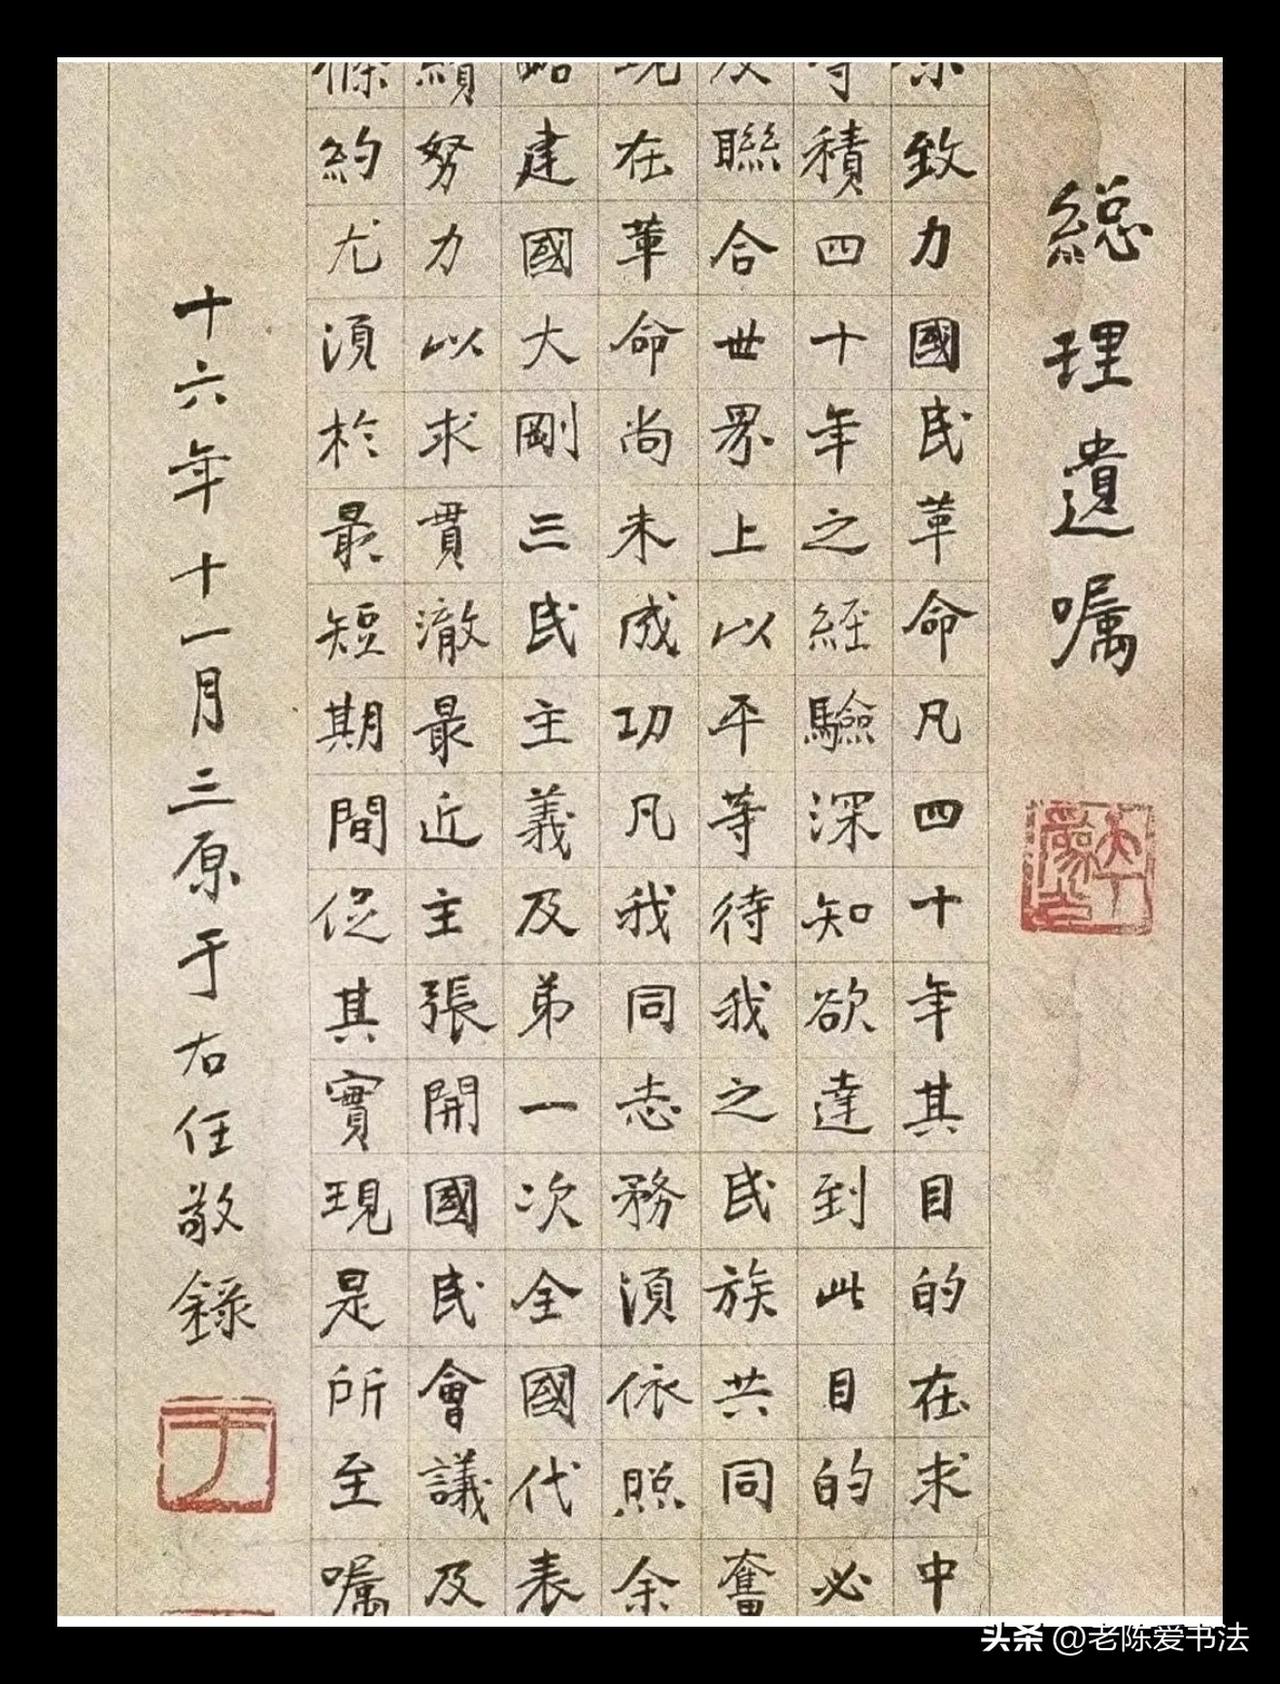 総理遺嘱
余致力國民革命凡四十年其目的在求中
等積四十年之經驗深知欲達到此目的必
及聯合世界上以平等待我之民族共同奮
現在革命尚未成功凡我同志務須依照余
略建國大剛三民主義及弟一次全國代表
續努力以求貫澈最近主張開國民會議及
條約尤須於最短期間促其實現是所至嘱
十六年十一月三原于右任敬錄
于
头条 @老陈爱书法